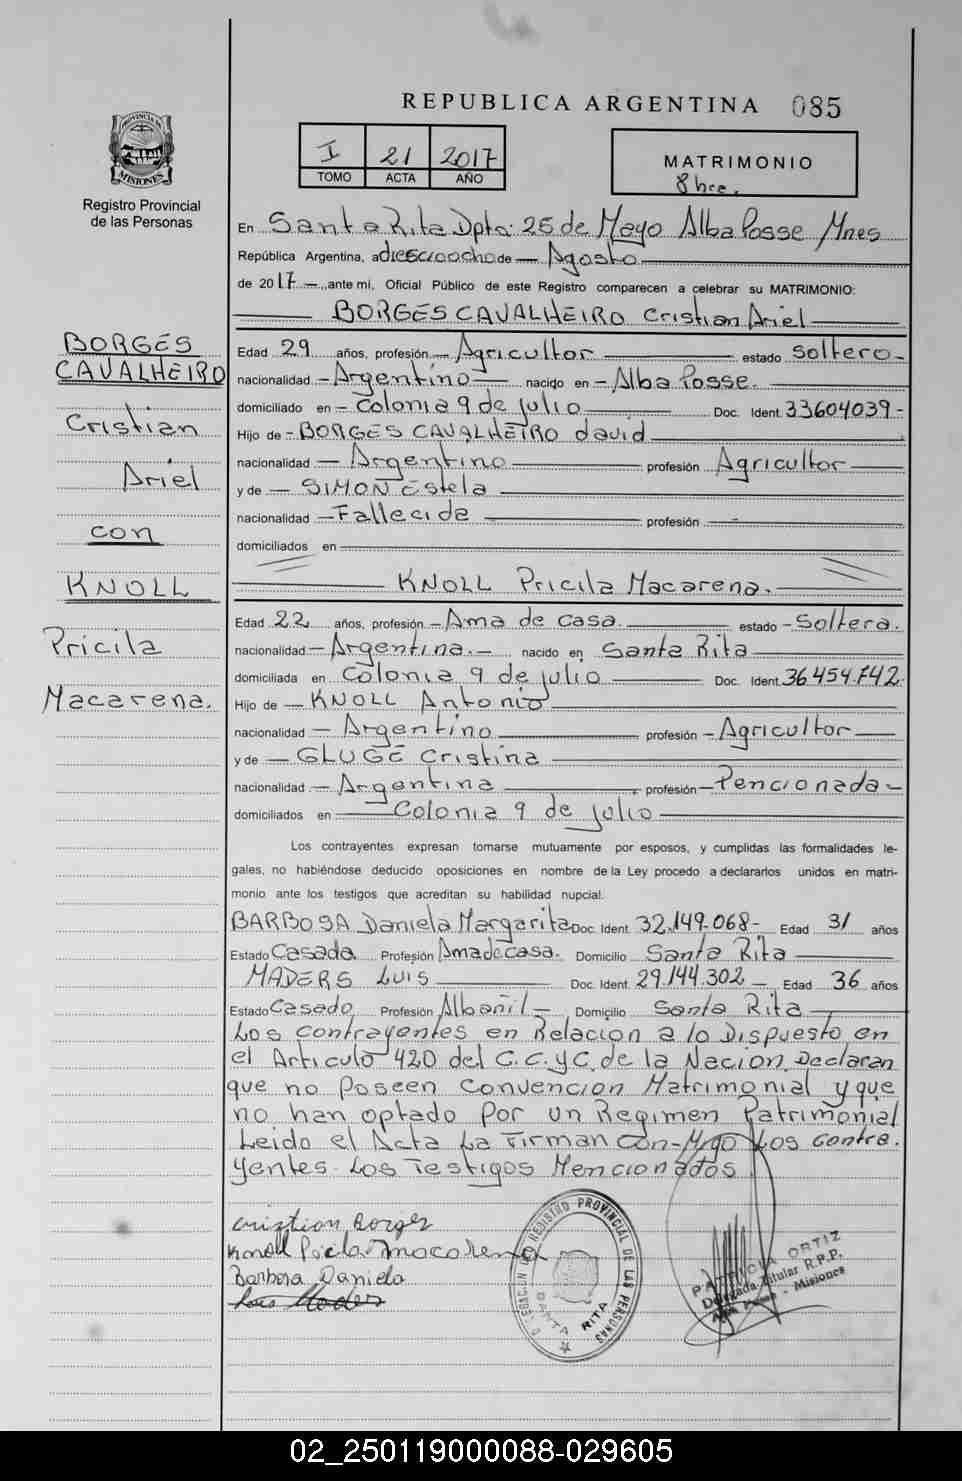 REPUBLICA ARGENTINA 085
PROVINCIA DE
MISIONES
Registro Provincial
de las Personas
I 21 2017
TOMO ACTA AÑO
MATRIMONIO
8 hre.
En Santa Rita Dpto: 25 de Mayo Alba Posse Mnes
República Argentina, a diesciocho de — Agosto
de 2017 —, ante mi, Oficial Público de este Registro comparecen a celebrar su MATRIMONIO:
— BORGES CAVALHEIRO Cristian Ariel —
BORGES
CAVALHEIRO
Cristian
Ariel
con
KNOLL
Pricila
Macarena.
Edad 29 años, profesión — Agricultor — estado soltero -
nacionalidad - Argentino — nacido en - Alba Posse. —
domiciliado en - Colonia 9 de julio — Doc. Ident. 33604039-
Hijo de - BORGES CAVALHEIRO david —
nacionalidad — Argentino — profesión Agricultor —
y de — SIMON Estela —
nacionalidad - Fallecida — profesión —
domiciliados en —
— KNOLL Pricila Macarena. —
Edad 22 años, profesión - Ama de casa. — estado - Soltera.
nacionalidad - Argentina. - nacido en Santa Rita —
domiciliada en Colonia 9 de julio — Doc. Ident. 36.454.742.
Hijo de — KNOLL Antonio —
nacionalidad — Argentino — profesión - Agricultor —
y de — GLUGE Cristina —
nacionalidad — Argentina — profesión - Pencionada -
domiciliados en — Colonia 9 de julio —
Los contrayentes expresan tomarse mutuamente por esposos, y cumplidas las formalidades le-
gales, no habiéndose deducido oposiciones en nombre de la Ley procedo a declararlos unidos en matri-
monio ante los testigos que acreditan su habilidad nupcial.
BARBOSA Daniela Margarita Doc. Ident. 32.149.068- Edad 31 años
Estado Casada Profesión Amadecasa. Domicilio Santa Rita —
MADERS LUIS — Doc. Ident. 29.144.302 — Edad 36 años
Estado Casado Profesión Albañil — Domicilio Santa Rita —
Los contrayentes en Relacion a lo Dispuesto en
el Articulo 420 del C.C.yC. de la Nacion, Declaran
que no Poseen Convencion Matrimonial y que
no han optado por un Regimen Patrimonial
Leido el Acta La Firman Con-Migo Los Contra.
yentes. Los Testigos Mencionados
Cristian Borges
Knoll Pricila Macarena
Barbosa Daniela
Luis Maders
DELEGACION DEL REGISTRO PROVINCIAL DE LAS PERSONAS
SANTA RITA
PATRICIA ORTIZ
Delegada Titular R.P.P.
Alba Posse - Misiones
02_250119000088-029605